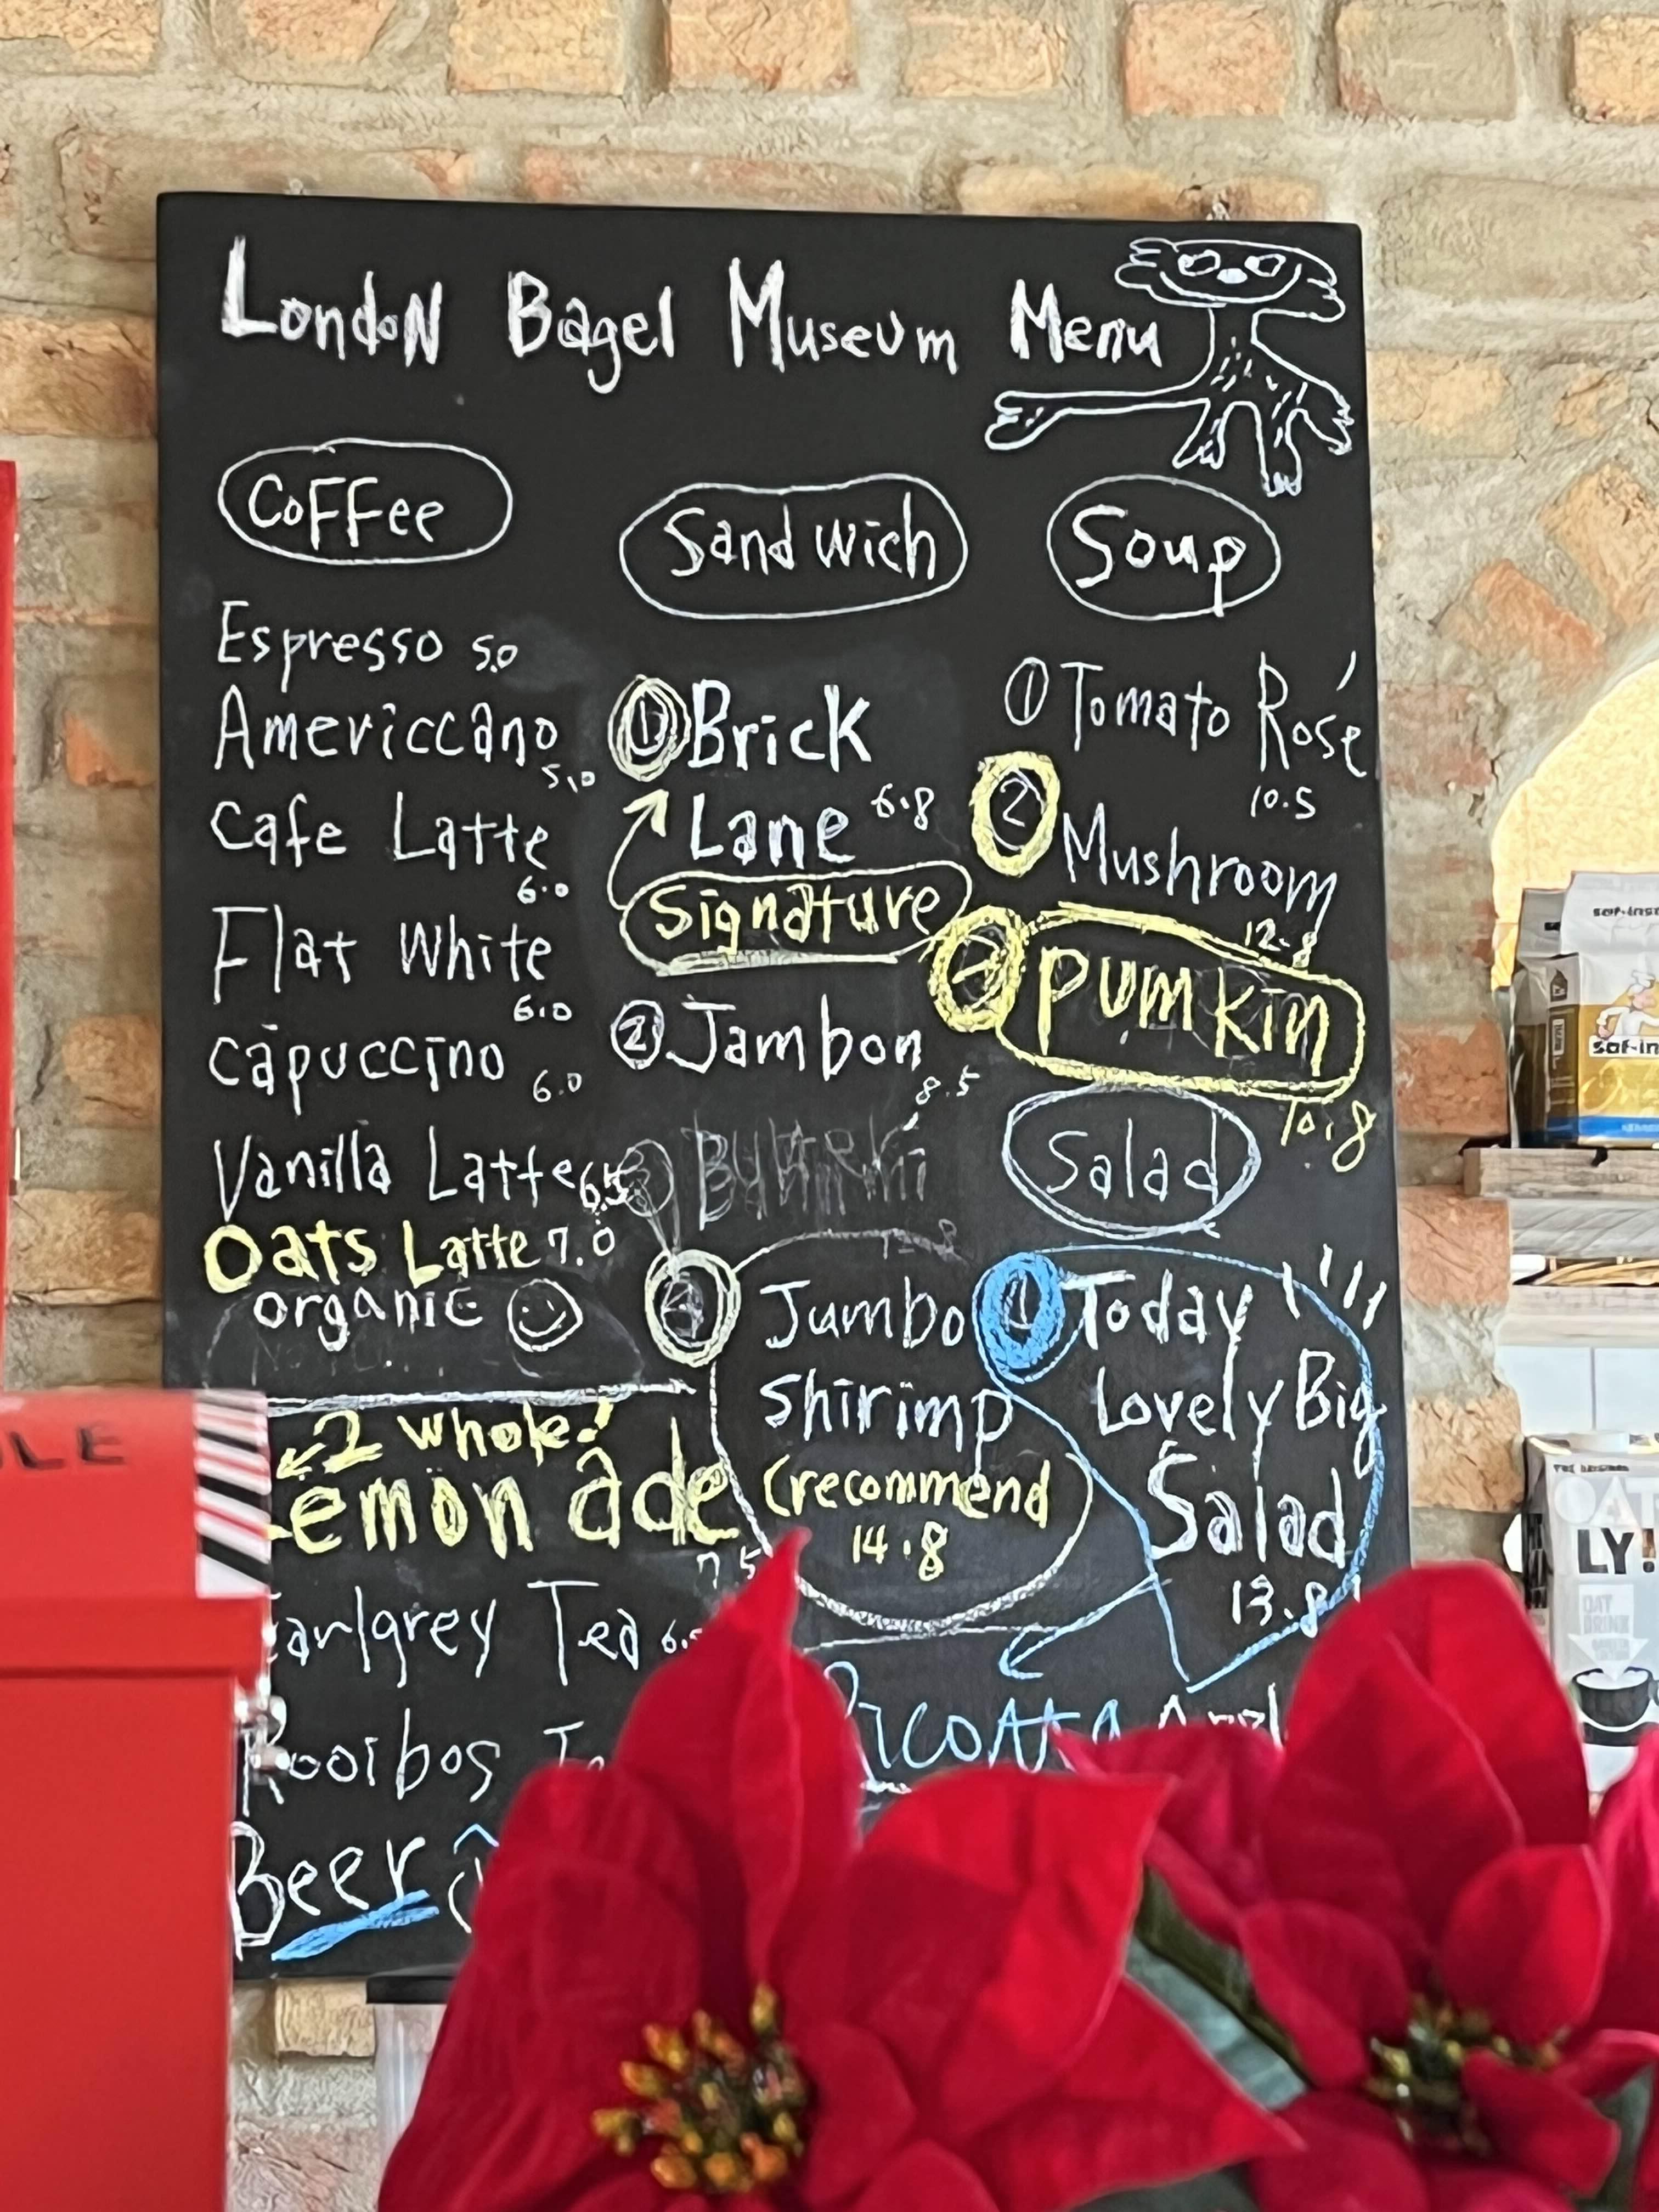 London Bagel Museum Menu
Coffee
Espresso 5.0
Americcano
5.0
Cafe Latte
6.0
Flat White
6.0
Capuccino 6.0
Vanilla Latte 6.5
Oats Latte 7.0
organic
2 whole!
Lemon ade
7.5
Earlgrey Tea
Rooibos
Beer
Sandwich
① Brick
Lane 6.8
Signature
② Jambon
8.5
④ Jumbo
Shirimp
(recommend
14.8
Soup
① Tomato Rosé
10.5
② Mushroom
12.8
Pumkin
10.8
Salad
① Today
Lovely Big
Salad
13.8
saf-in
OAT
LY!
OAT
DRINK